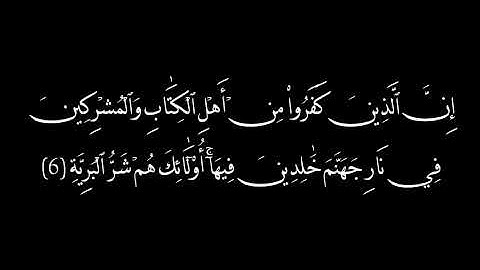 إِنَّ ٱلَّذِينَ كَفَرُوا۟ مِنْ أَهْلِ ٱلْكِتَٰبِ وَٱلْمُشْرِكِينَ
فِي نَارِ جَهَنَّمَ خَٰلِدِينَ فِيهَآ ۚ أُو۟لَٰٓئِكَ هُمْ شَرُّ ٱلْبَرِيَّةِ (6)